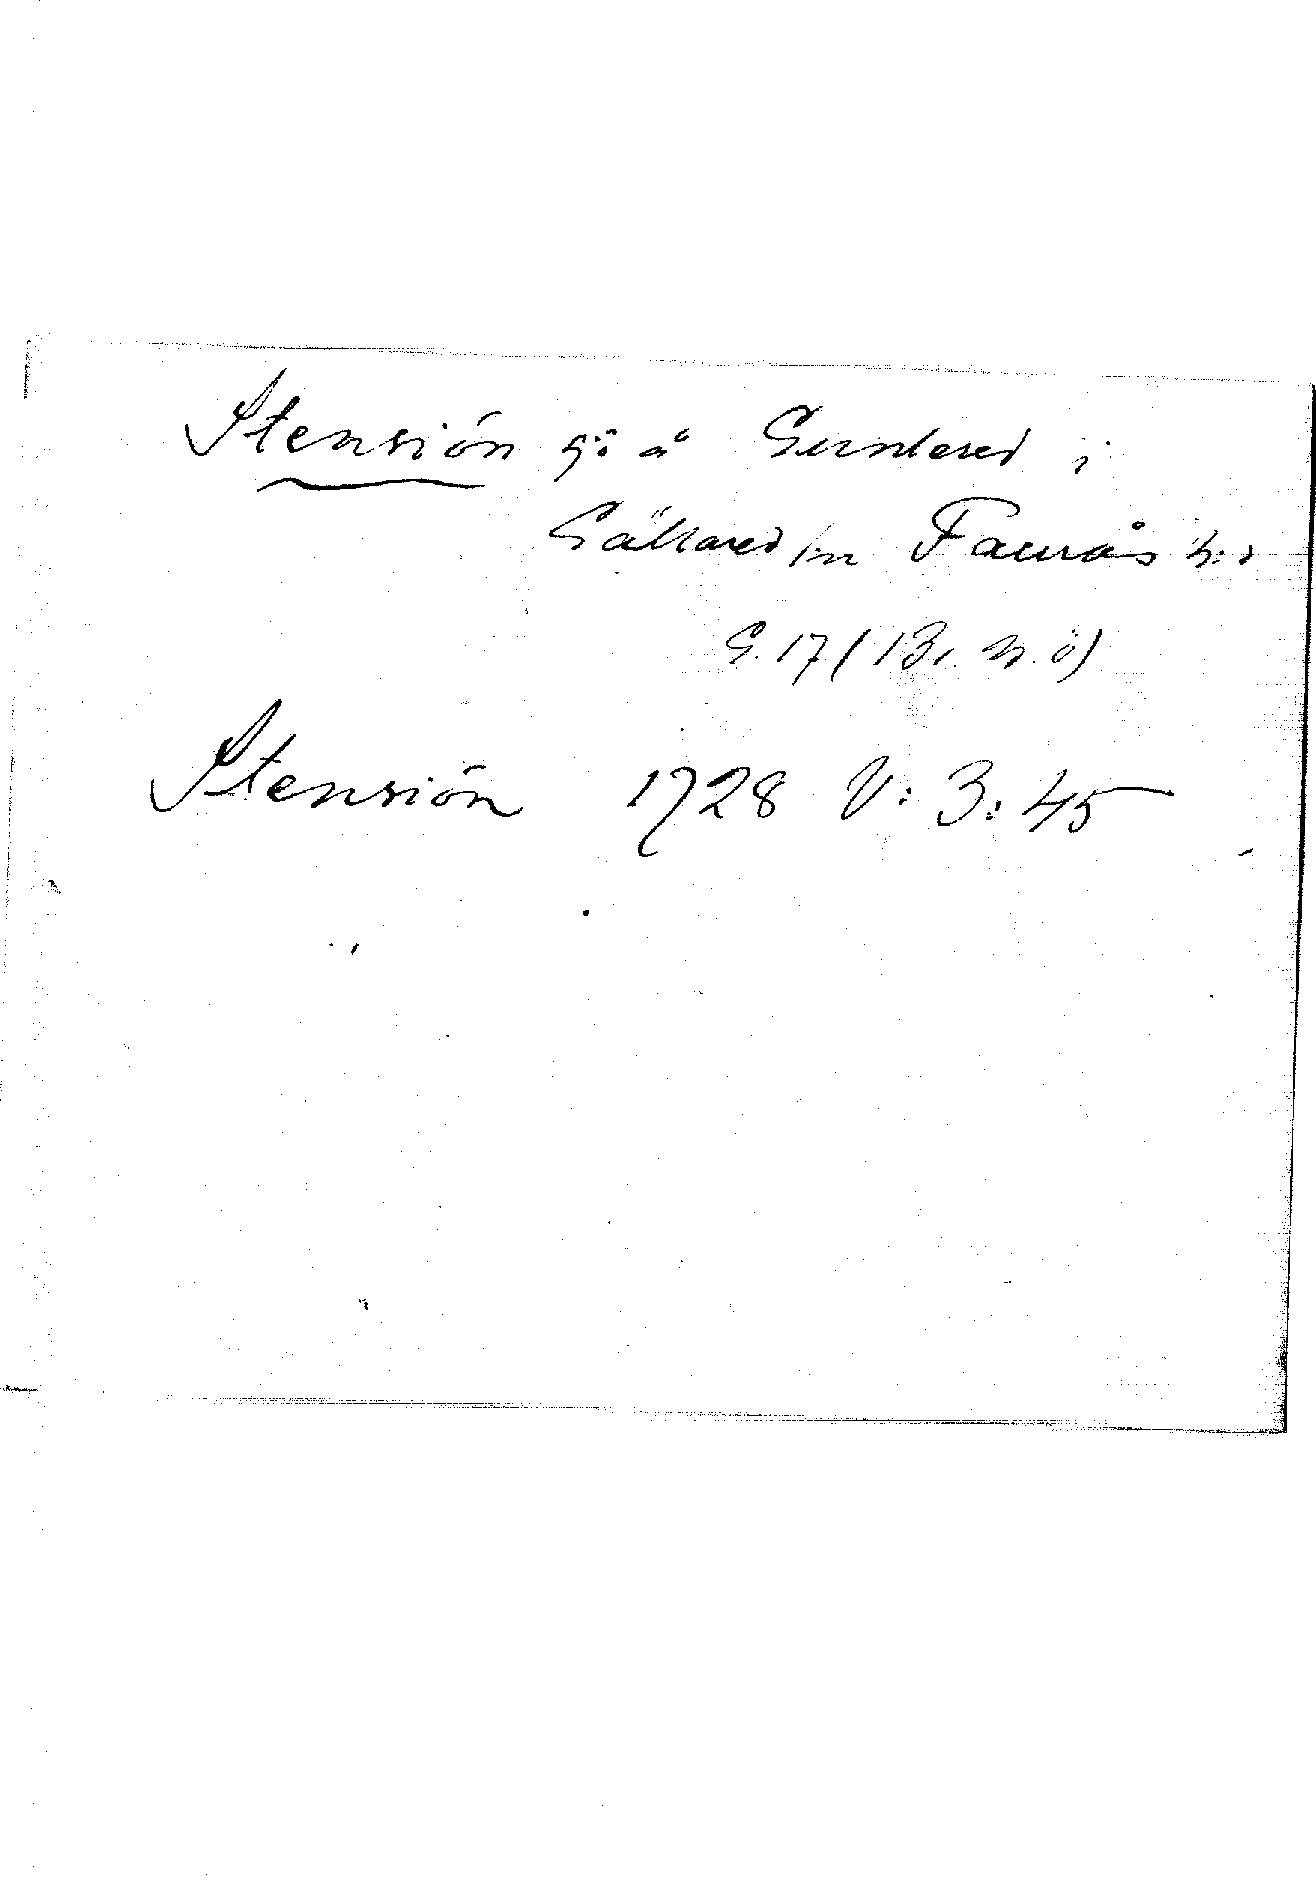 Stensión sjö å Gunnlered i
Gällared sn Faurås h:d
G. 17 ( 13, n. ö)
Stensión 1728 V: 3: 45